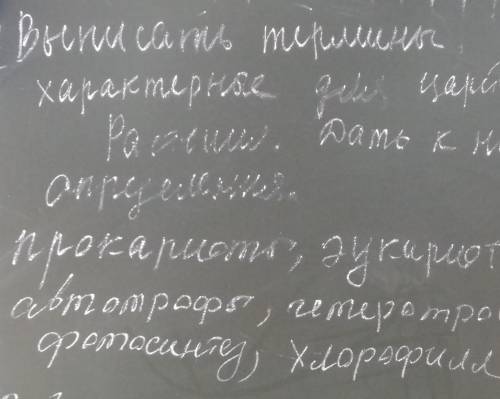 Выписать термины,
характерные для царс
Растения. Дать к н
определения.
прокариоты, эукариот
автотрофы, гетеротро
фотосинтез, хлорофилл